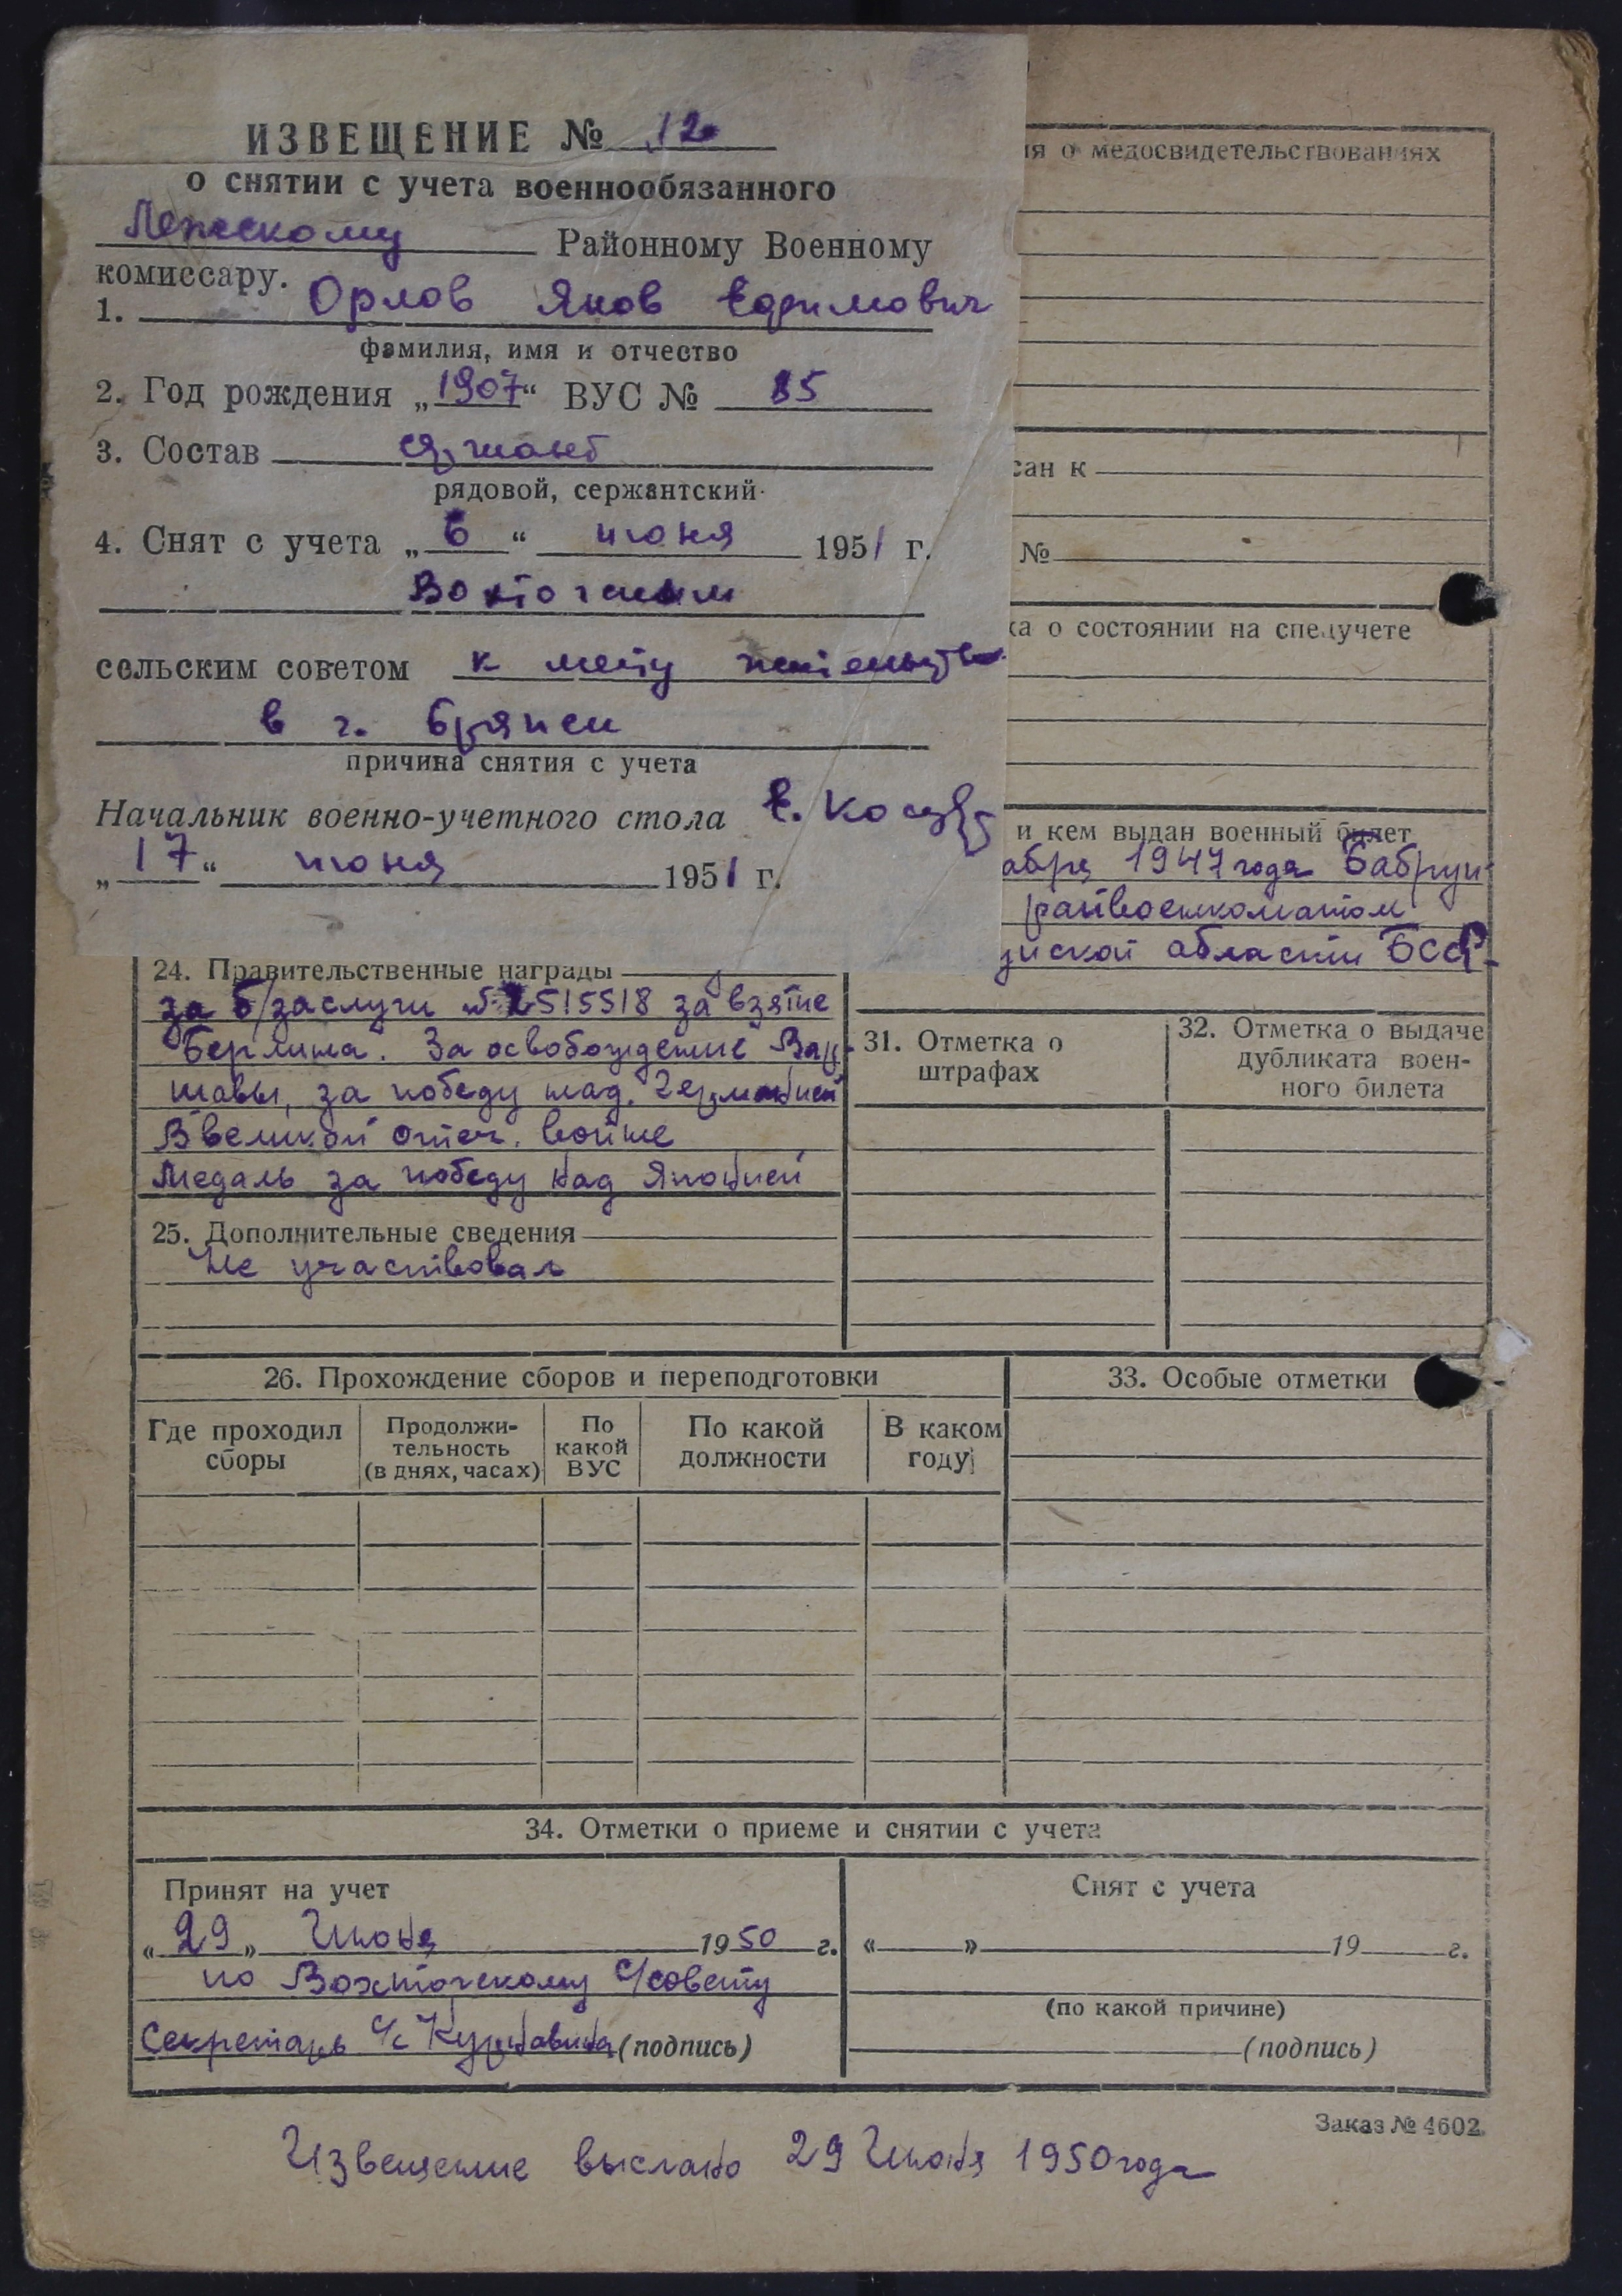 ИЗВЕЩЕНИЕ № 12
о снятии с учета военнообязанного
Лежскому Районному Военному
комиссару.
1. Орлов Яков Ефимович
фамилия, имя и отчество
2. Год рождения „1907“ ВУС № 85
3. Состав сержант
рядовой, сержантский
4. Снят с учета „6“ июня 1951 г.
Вохтогским
сельским советом к месту жительства
в г.
причина снятия с учета
Начальник военно-учетного стола Е.
„17“ июня 1951 г.
ия о медосвидетельствованиях
сан к
№
ка о состоянии на спецучете
и кем выдан военный билет
абря 1947 года Бабруй-
райвоенкоматом
уйской области БССР
24. Правительственные награды
за б/заслуги № 2515518 за взятие
Берлина. За освобождение Вар-
шавы, за победу над Германией
В великой отеч. войне
Медаль за победу над Японией
25. Дополнительные сведения
Не участвовал
31. Отметка о
штрафах
32. Отметка о выдаче
дубликата воен-
ного билета
26. Прохождение сборов и переподготовки
Где проходил
сборы
Продолжи-
тельность
(в днях, часах)
По
какой
ВУС
По какой
должности
В каком
году
33. Особые отметки
34. Отметки о приеме и снятии с учета
Принят на учет
«29» Июня 1950 г.
по Вохтогскому С/совету
Секретарь с/с (подпись)
Снят с учета
« » 19 г.
(по какой причине)
(подпись)
Заказ № 4602.
Извещение выслано 29 Июня 1950 года